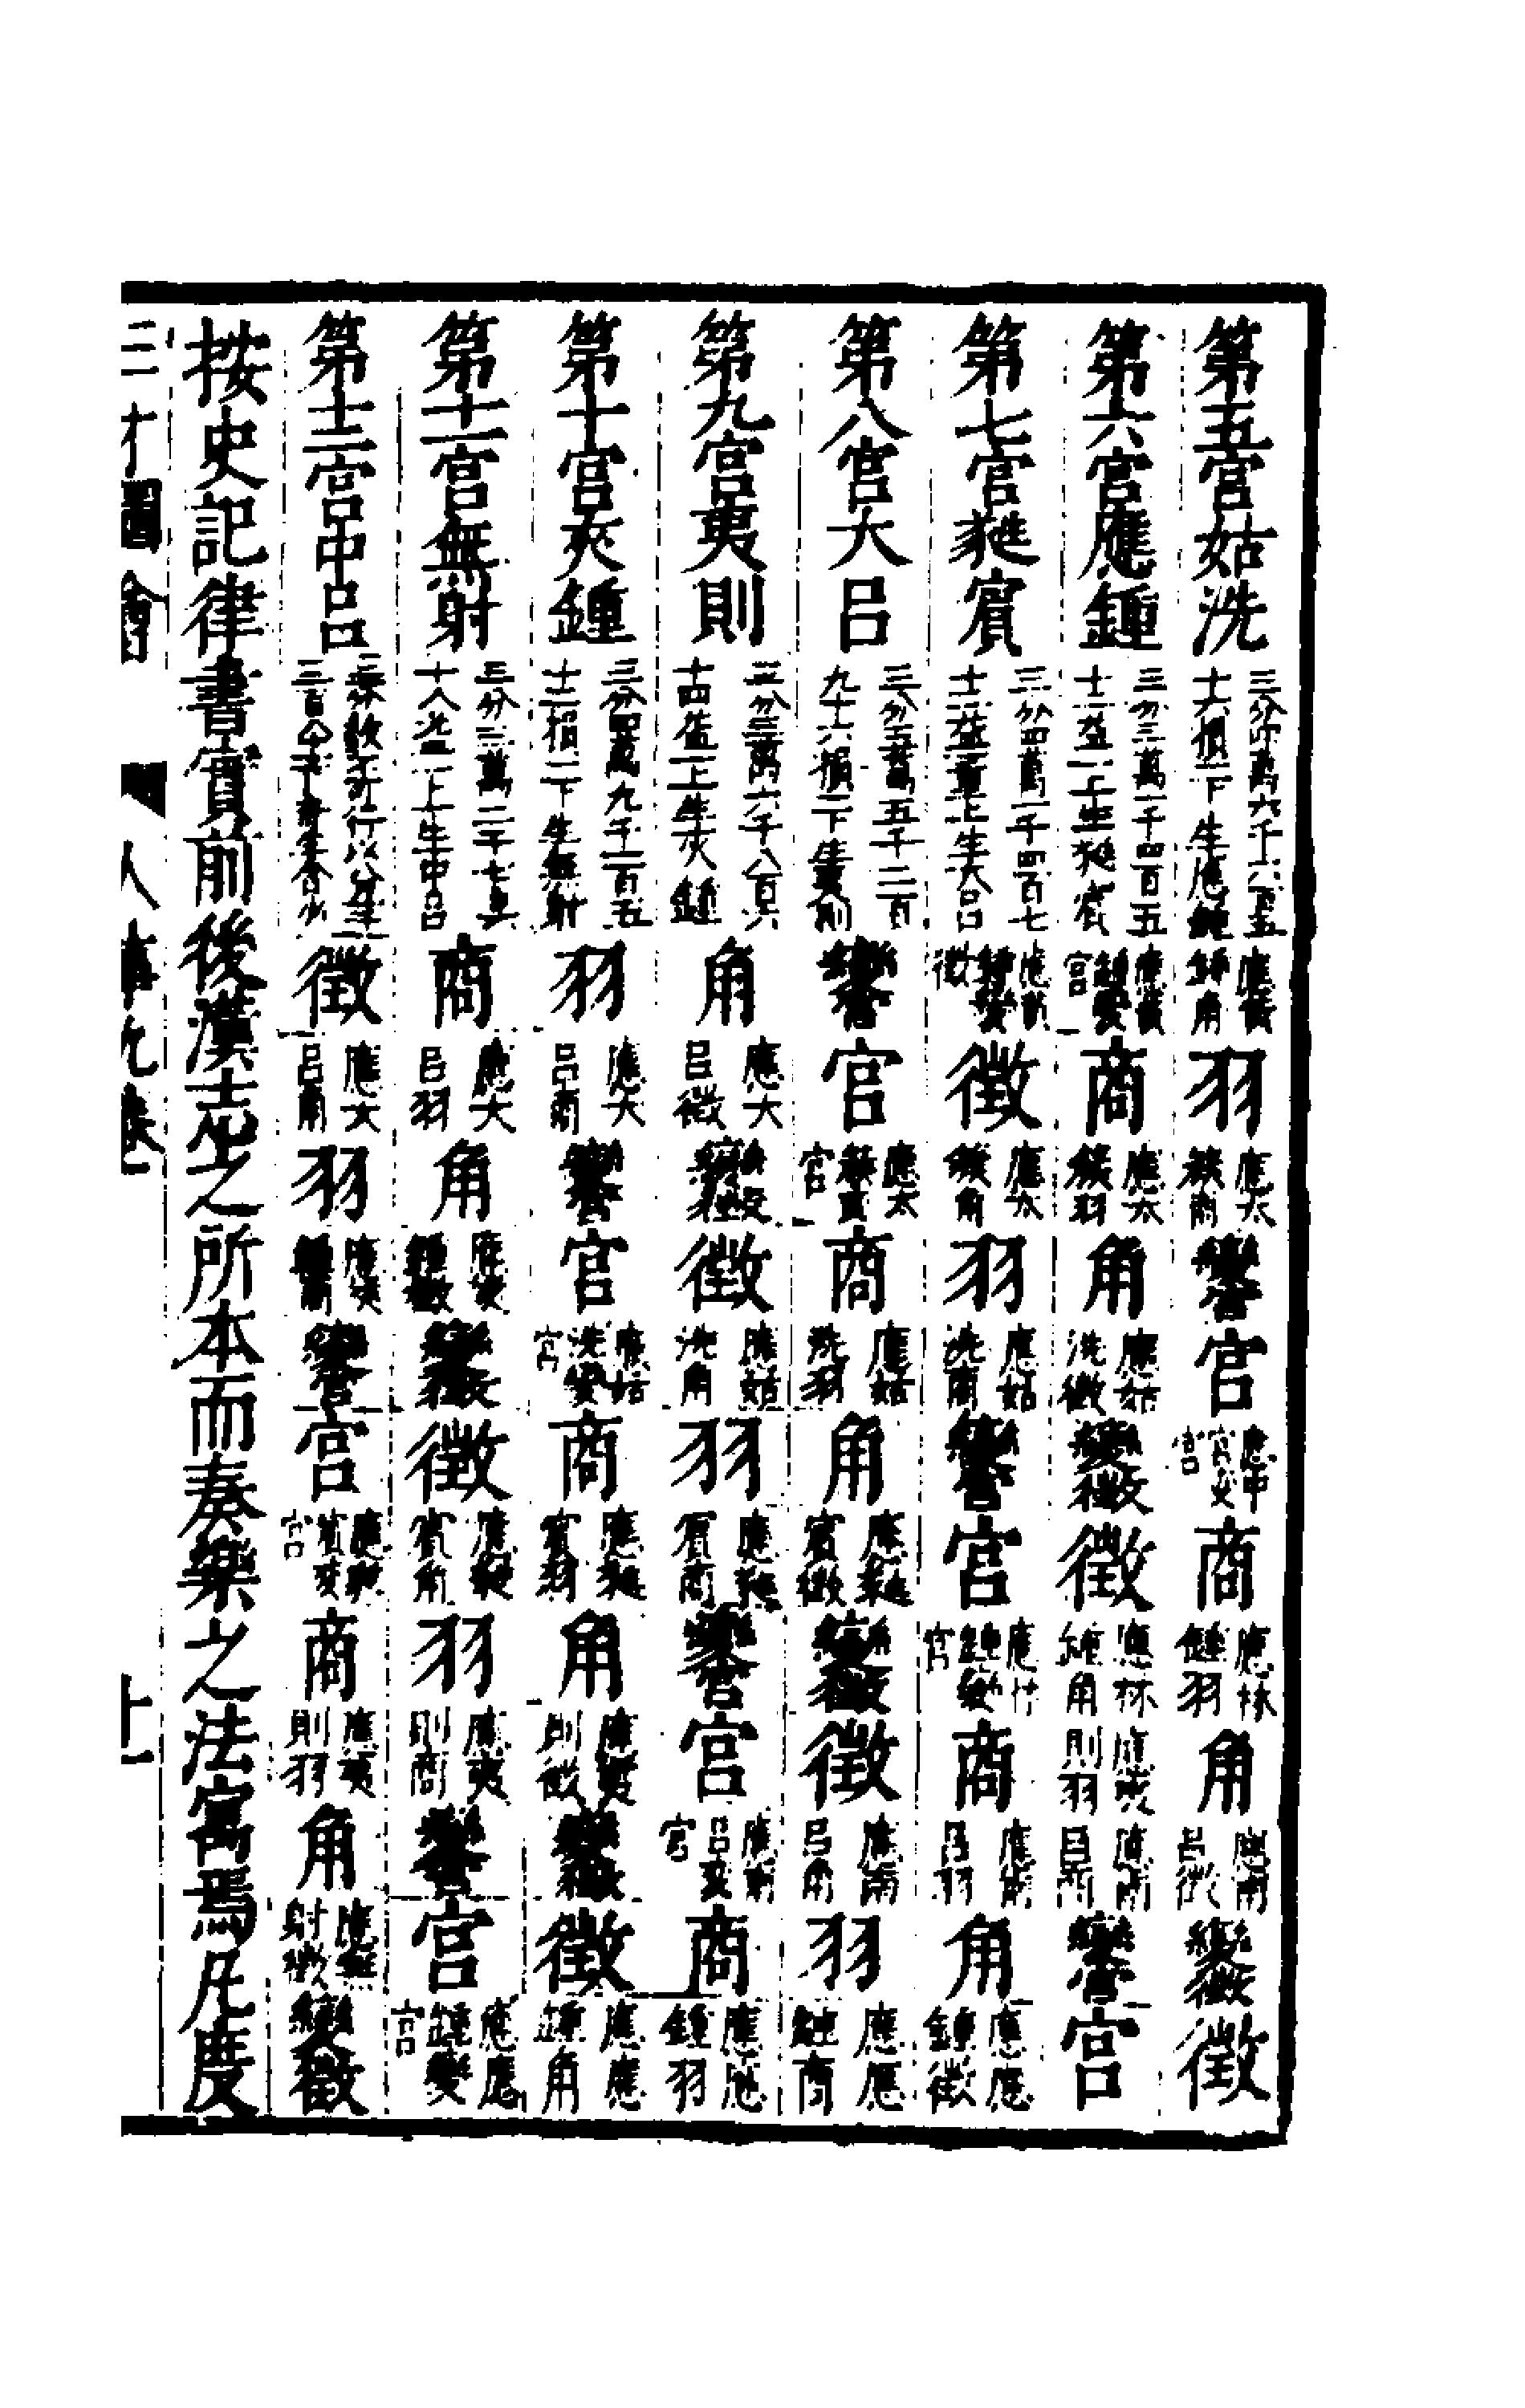 第五宮姑洗 三分四萬六千六百五十六損一下生應鍾 應黃鍾角 羽 應太簇商 變宮 應中宮變宮 商 應林鍾羽 角 應南呂徵 變徵 徵
第六宮應鍾 三分三萬一千四百五十二益一上生蕤賓 應黃鍾變宮 商 應太簇羽 角 應姑洗徵 變徵 徵 應林鍾角 應夷則羽 應南呂商 變宮 宮
第七宮蕤賓 三分四萬一千四百七十二益一重上生大呂 應黃鍾變徵 徵 應太簇角 羽 應姑洗商 變宮 宮 應林鍾變宮 商 應南呂羽 角 應應鍾徵
第八宮大呂 三分五萬五千二百九十六損一下生夷則 變宮 應太簇變宮 商 應姑洗羽 角 應蕤賓徵 變徵 徵 應南呂角 羽 應應鍾商
第九宮夷則 三分三萬六千八百六十四益一上生夾鍾 角 應大呂徵 變徵 徵 應姑洗角 羽 應蕤賓商 變宮 宮 應南呂變宮 商 應應鍾羽
第十宮夾鍾 三分四萬九千一百五十二損一下生無射 羽 應大呂商 變宮 宮 應姑洗變宮 商 應蕤賓羽 角 應夷則徵 變徵 徵 應應鍾角
第十一宮無射 三分三萬二千七百六十八益一上生中呂 商 應大呂羽 角 應夾鍾徵 變徵 徵 應蕤賓角 羽 應夷則商 變宮 宮 應應鍾變宮
第十二宮中呂 徵 應大呂角 羽 應夾鍾商 變宮 宮 應蕤賓變宮 商 應夷則羽 角 應無射徵 變徵
按史記律書實前後漢志之所本而奏樂之法寓焉凡度
三才圖會 人事九卷 十一